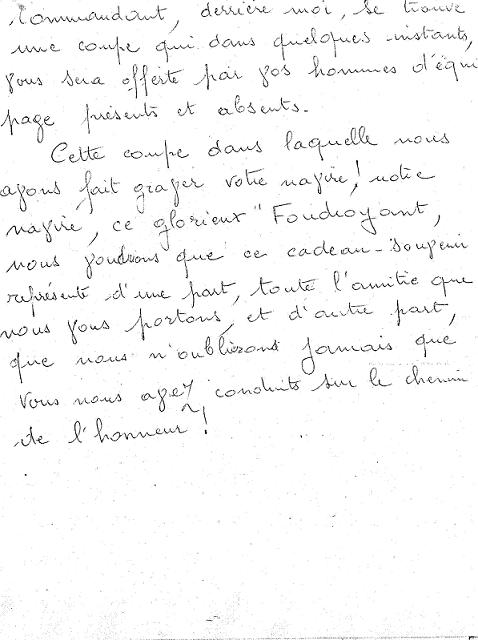 Commandant, derrière moi, se trouve
une coupe qui dans quelques instants,
vous sera offerte par vos hommes d'équi
page présents et absents.
Cette coupe dans laquelle nous
avons fait graver votre navire, notre
navire, ce glorieux "Foudroyant,
nous voudrions que ce cadeau-souvenir
représente d'une part, toute l'amitié que
nous vous portons, et d'autre part,
que nous n'oublierons jamais que
vous nous avez conduits sur le chemin
de l'honneur !